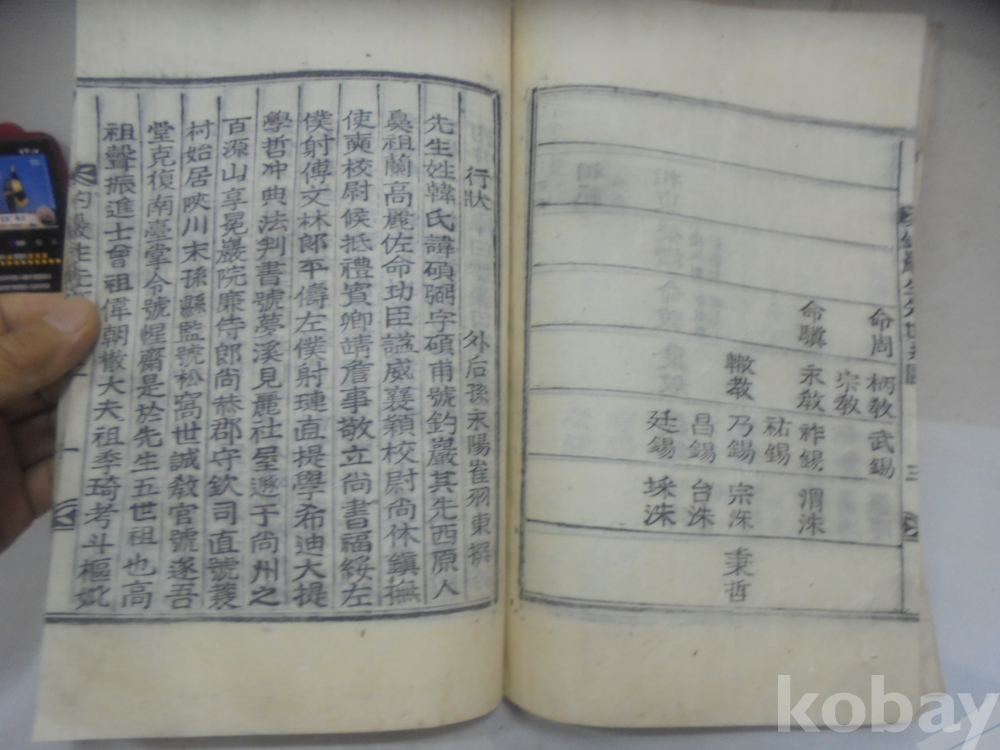 命周
柄敎 武錫
宗敎
命驥 永敎 祚錫 渭洙
祐錫
轍敎 乃錫 宗洙 秉哲
昌錫 台洙
廷錫 埰洙
三
行狀 外后孫永陽崔羽東撰
先生姓韓氏諱碩弼字碩甫號釣巖其先西原人
鼻祖蘭高麗佐命功臣謚威襄穎校尉尚休鎭撫
使奭校尉候抵禮賓卿靖詹事敬立尚書福綏左
僕射傅文林郎平儔左僕射璉直提學希迪大提
學哲冲典法判書號夢溪見麗社屋遯于尚州之
百源山享冕巖院廉侍郎尚恭郡守欽司直號蓑
村始居陜川末孫縣監號松窩世誠敎官號遂吾
堂克復南臺掌令號惺齋是於先生五世祖也高
祖聲振進士曾祖偉朝散大夫祖季琦考斗樞妣
一
kobay